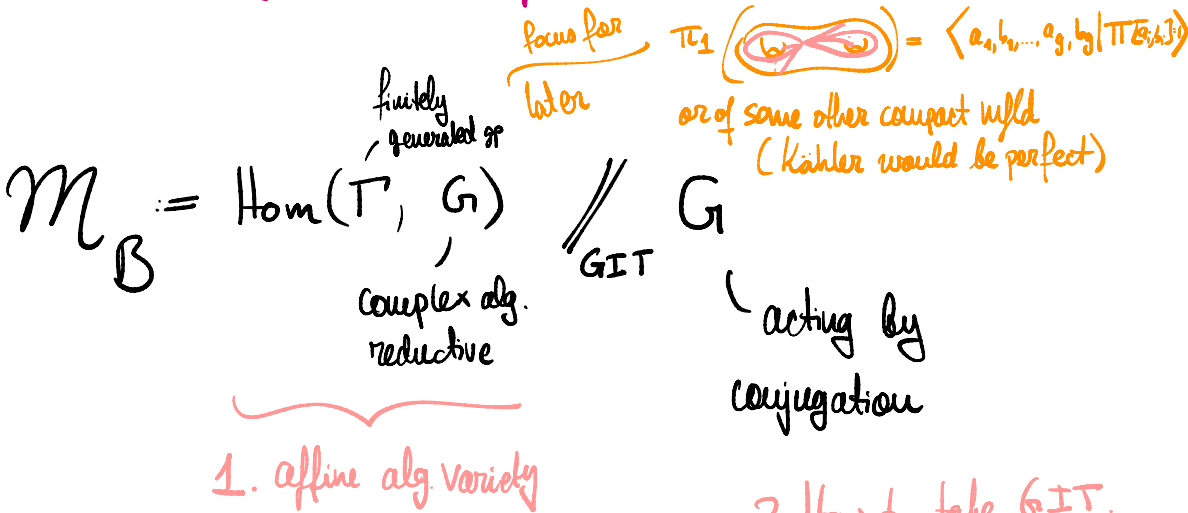 focus for
later
π1 ( ) = ⟨a1, b1, ..., ag, bg | Π[ai,bi]=1⟩
or of some other compact mfld
(Kähler would be perfect)
finitely
generated gp
M_B := Hom(Γ, G) //GIT G
complex alg.
reductive
acting by
conjugation
1. affine alg. variety
2. How to take GIT.